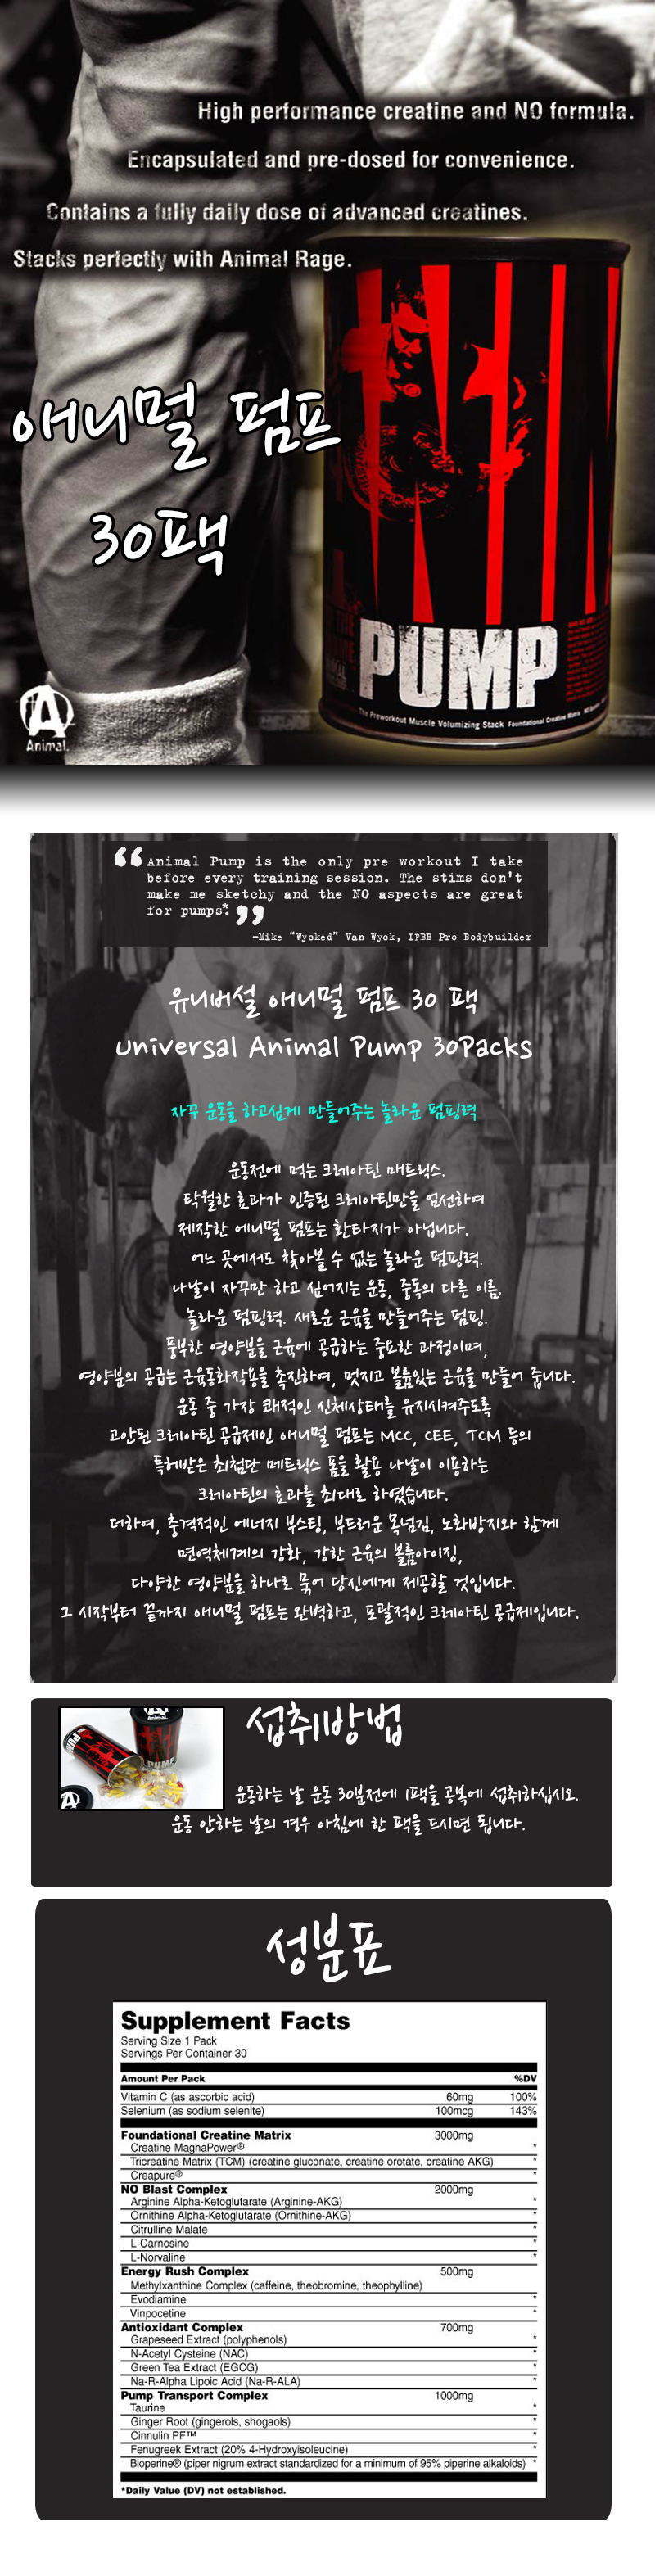 High performance creatine and NO formula.
Encapsulated and pre-dosed for convenience.
Contains a fully daily dose of advanced creatines.
Stacks perfectly with Animal Rage.
애니멀 펌프
30팩
PUMP
The Preworkout Muscle Volumizing Stack Foundational Creatine Matrix
Animal.
“Animal Pump is the only pre workout I take
before every training session. The stims don't
make me sketchy and the NO aspects are great
for pumps*.”
-Mike "Wycked" Van Wyck, IFBB Pro Bodybuilder
유니버설 애니멀 펌프 30 팩
universal Animal Pump 30Packs
자꾸 운동을 하고싶게 만들어주는 놀라운 펌핑력
운동전에 먹는 크레아틴 매트릭스.
탁월한 효과가 인증된 크레아틴만을 엄선하여
제작한 에니멀 펌프는 환타지가 아닙니다.
어느 곳에서도 찾아볼 수 없는 놀라운 펌핑력.
나날이 자꾸만 하고 싶어지는 운동, 중독의 다른 이름.
놀라운 펌핑력. 새로운 근육을 만들어주는 펌핑.
풍부한 영양분을 근육에 공급하는 중요한 과정이며,
영양분의 공급는 근육동화작용을 촉진하여, 멋지고 볼륨있는 근육을 만들어 줍니다.
운동 중 가장 쾌적인 신체상태를 유지시켜주도록
고안된 크레아틴 공급제인 애니멀 펌프는 MCC, CEE, TCM 등의
특허받은 최첨단 메트릭스 폼을 활용 나날이 이용하는
크레아틴의 효과를 최대로 하였습니다.
더하여, 충격적인 에너지 부스팅, 부드러운 목넘김, 노화방지와 함께
면역체계의 강화, 강한 근육의 볼륨아이징,
다양한 영양분을 하나로 묶어 당신에게 제공할 것입니다.
그 시작부터 끝까지 애니멀 펌프는 완벽하고, 포괄적인 크레아틴 공급제입니다.
PUMP
PUMP
섭취방법
운동하는 날 운동 30분전에 1팩을 공복에 섭취하십시오.
운동 안하는 날의 경우 아침에 한 팩을 드시면 됩니다.
성분표
Supplement Facts
Serving Size 1 Pack
Servings Per Container 30
Amount Per Pack %DV
Vitamin C (as ascorbic acid) 60mg 100%
Selenium (as sodium selenite) 100mcg 143%
Foundational Creatine Matrix 3000mg
Creatine MagnaPower® *
Tricreatine Matrix (TCM) (creatine gluconate, creatine orotate, creatine AKG) *
Creapure® *
NO Blast Complex 2000mg
Arginine Alpha-Ketoglutarate (Arginine-AKG) *
Ornithine Alpha-Ketoglutarate (Ornithine-AKG) *
Citrulline Malate *
L-Carnosine *
L-Norvaline *
Energy Rush Complex 500mg
Methylxanthine Complex (caffeine, theobromine, theophylline)
Evodiamine *
Vinpocetine *
Antioxidant Complex 700mg
Grapeseed Extract (polyphenols) *
N-Acetyl Cysteine (NAC) *
Green Tea Extract (EGCG) *
Na-R-Alpha Lipoic Acid (Na-R-ALA) *
Pump Transport Complex 1000mg
Taurine *
Ginger Root (gingerols, shogaols) *
Cinnulin PF™ *
Fenugreek Extract (20% 4-Hydroxyisoleucine) *
Bioperine® (piper nigrum extract standardized for a minimum of 95% piperine alkaloids) *
*Daily Value (DV) not established.